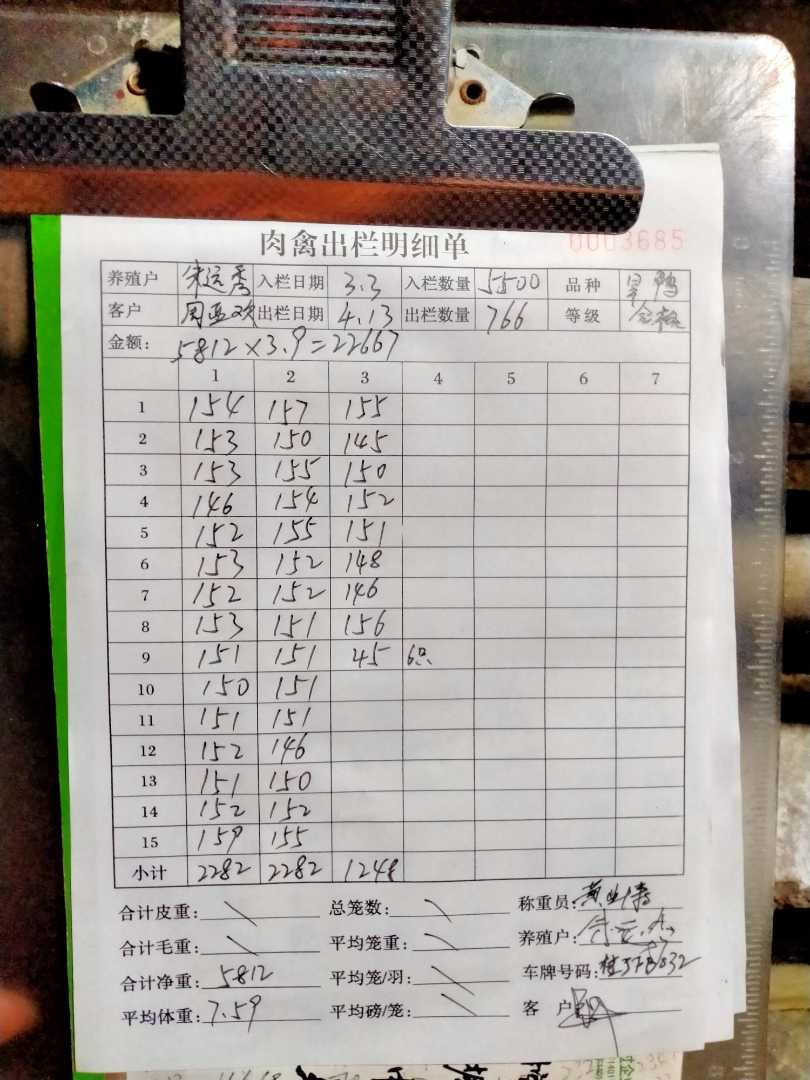 肉禽出栏明细单 0003685
养殖户 宋运秀 入栏日期 3.3 入栏数量 5500 品种 旱鸭
客户 周亚欢 出栏日期 4.13 出栏数量 766 等级
金额: 5812×3.9=22667
1 2 3 4 5 6 7
1 154 157 155
2 153 150 145
3 153 155 150
4 146 154 152
5 152 155 151
6 153 152 148
7 152 152 146
8 153 151 156
9 151 151 45 6只
10 150 151
11 151 151
12 152 146
13 151 150
14 152 152
15 159 155
小计 2282 2282 1248
合计皮重: 总笼数: 称重员:
合计毛重: 平均笼重: 养殖户:
合计净重: 5812 平均笼/羽: 车牌号码:
平均体重: 7.59 平均磅/笼: 客 户